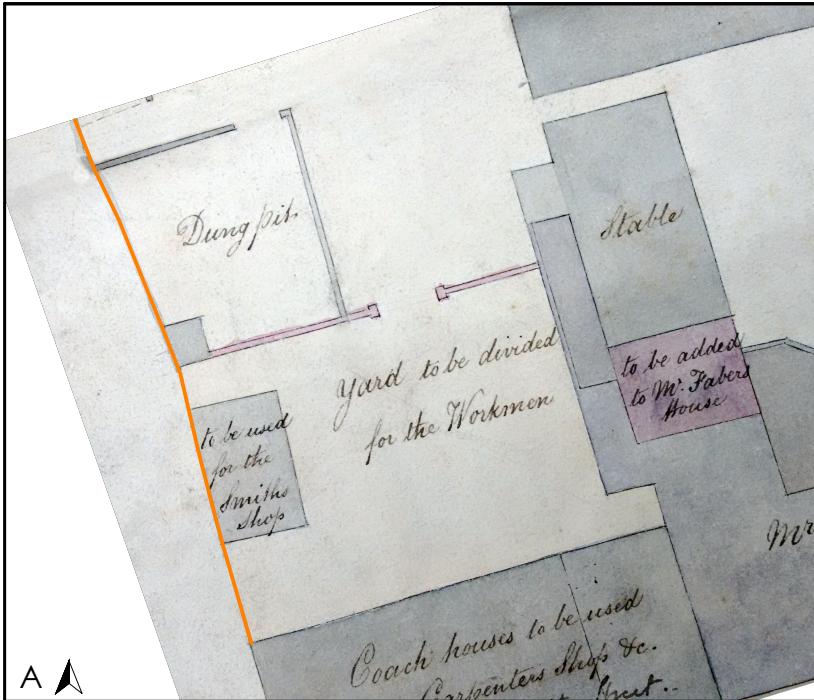 Dung pit.
Stable
Yard to be divided
for the Workmen
to be added
to Mr. Fabers
House
to be used
for the
Smiths
Shop
Mr
Coach houses to be used
Carpenters Shop &c.
A